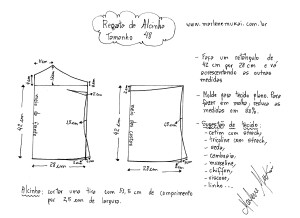 Regata de Alcinha
Tamanho 48
www.marlenemukai.com.br
- Faça um retângulo de
42 cm por 28 cm e vá
acrescentando as outras
medidas
- Molde para tecido plano. Para
fazer em malha, reduza as
medidas em 20%.
- Sugestões de tecido:
- cetim com strech,
- tricoline com strech,
- seda,
- cambraia,
- musseline,
- chiffon,
- viscose,
- linho...
42 cm
28 cm
42 cm
28 cm
Alcinha: cortar uma tira com cm de comprimento
por 2,5 cm de largura.